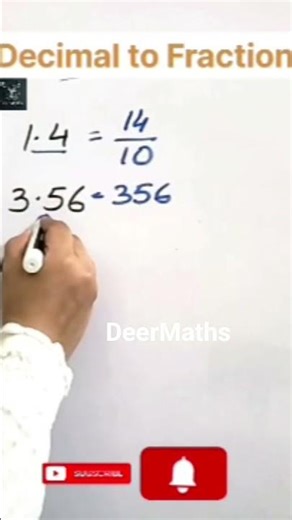 Decimal to Fraction
1.4 = 14/10
3.56 = 356
DeerMaths
SUBSCRIBE